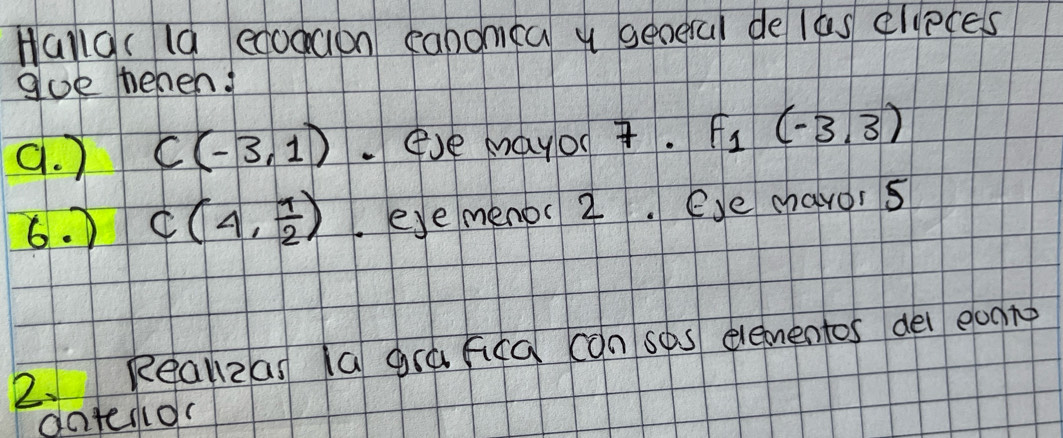 Hallar la ecuación canonica y general de las elipces
que tienen:
a.) C(-3,1). eje mayor 7. F1 (-3,3)
b.) C(4, 1/2). eje menor 2. Eje mayor 5
2. Realizar la grafica con sus elementos del punto
anterior